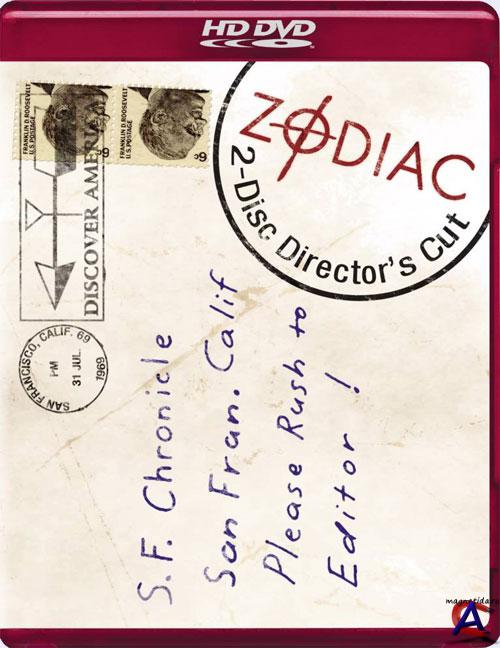 HD DVD
ZODIAC
2-Disc Director's Cut
FRANKLIN D. ROOSEVELT
U.S. POSTAGE
6¢
FRANKLIN D. ROOSEVELT
U.S. POSTAGE
6¢
DISCOVER AMERICA
SAN FRANCISCO, CALIF. 69
PM
31 JUL.
1969
S.F. Chronicle
San Fran. Calif
Please Rush to
Editor !